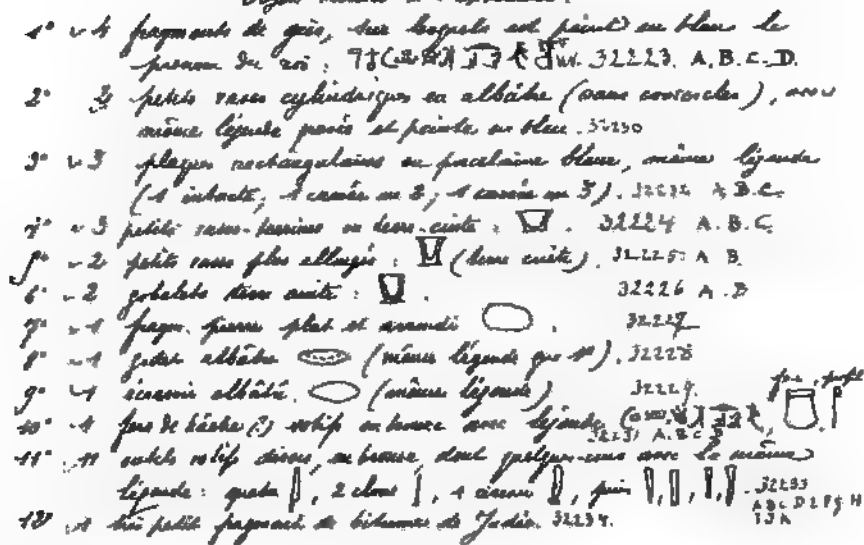 1° 4 fragments de grès, sur lesquels est peint en bleu le
prénom du roi : 32223. A.B.C.D.
2° petits vases cylindriques en albâtre (sans couvercles), avec
même légende peinte en bleu. 32230
3° 3 plaques rectangulaires en porcelaine bleue, même légende
(1 intacte, 1 cassée en 2, 1 cassée en 3). 32232 A.B.C.
4° 3 petits vases-terrines en terre-cuite : . 32224 A.B.C.
5° 2 petits vases plus allongés : (terre cuite). 32225 A B
6° 2 gobelets terre cuite : . 32226 A.B
7° 1 fragm. pierre plat et arrondi . 32227
8° 1 godet albâtre (même légende que 1°). 32228
9° 1 albâtre. (même légende) 32229. face profil
10° 1 fers de hâche (?) votifs en bronze avec légende
11° 11 outils votifs divers, en bronze, dont quelques-uns avec la même
légende : quatre , 2 clous , 1 ciseau , puis . 32233
12° 1 très petit fragment de bitume de Judée. 32234.